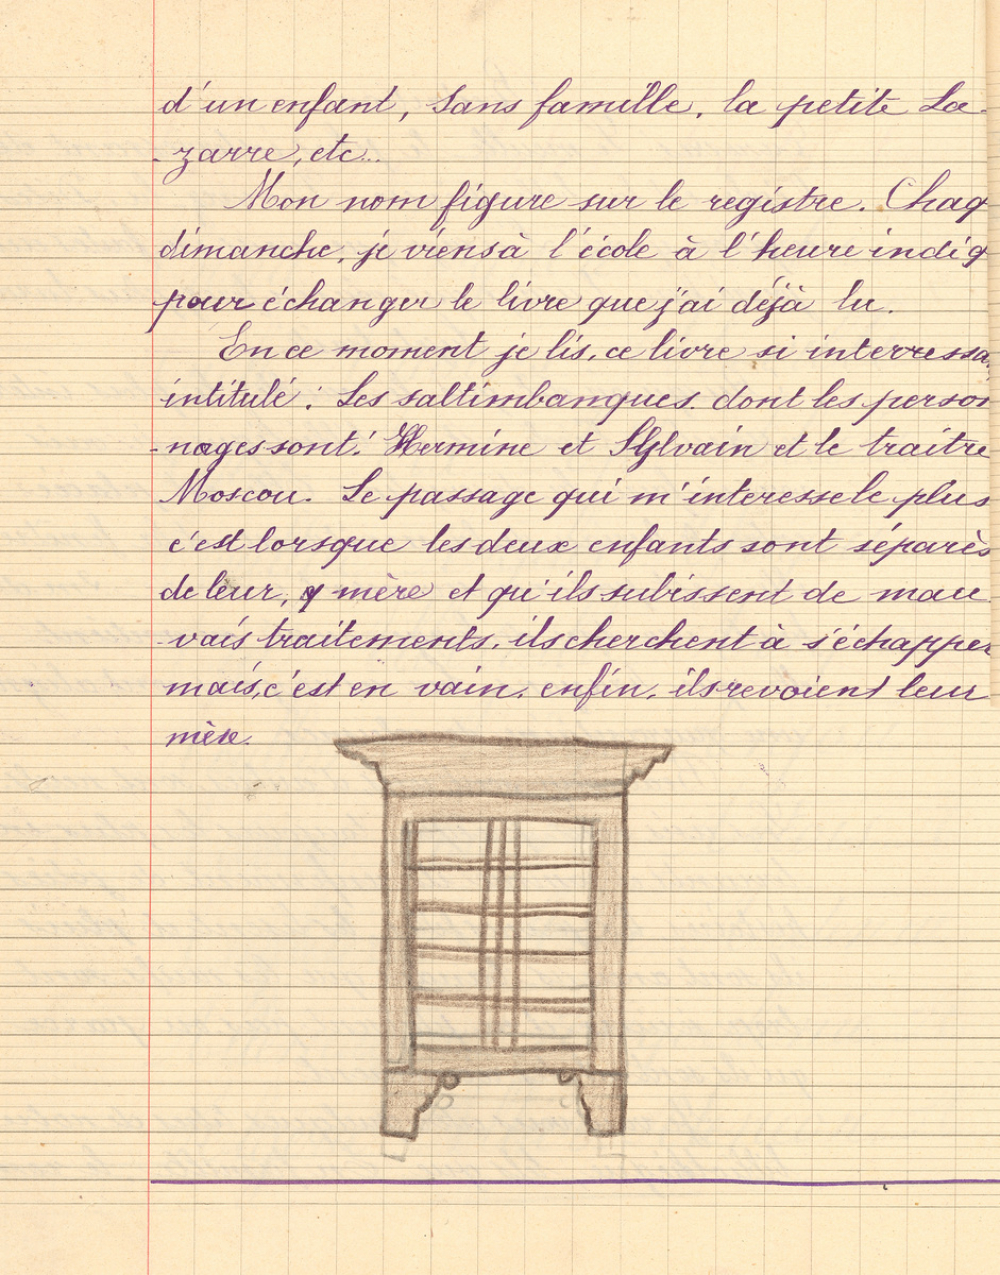 d'un enfant, Sans famille, la petite La-
-zarre, etc...
Mon nom figure sur le registre. Chaq
dimanche, je viens à l'école à l'heure indiq
pour échanger le livre que j'ai déjà lu.
En ce moment je lis, ce livre si interressa
intitulé : Les saltimbanques. dont les person
-nages sont : Hermine et Sylvain et le traitre
Moscou. Le passage qui m'interesse le plus
c'est lorsque les deux enfants sont séparès
de leur, mère et qu'ils subissent de mau
-vais traitements, ils cherchent à s'échapper
mais, c'est en vain, enfin, ils revoient leur
mère.